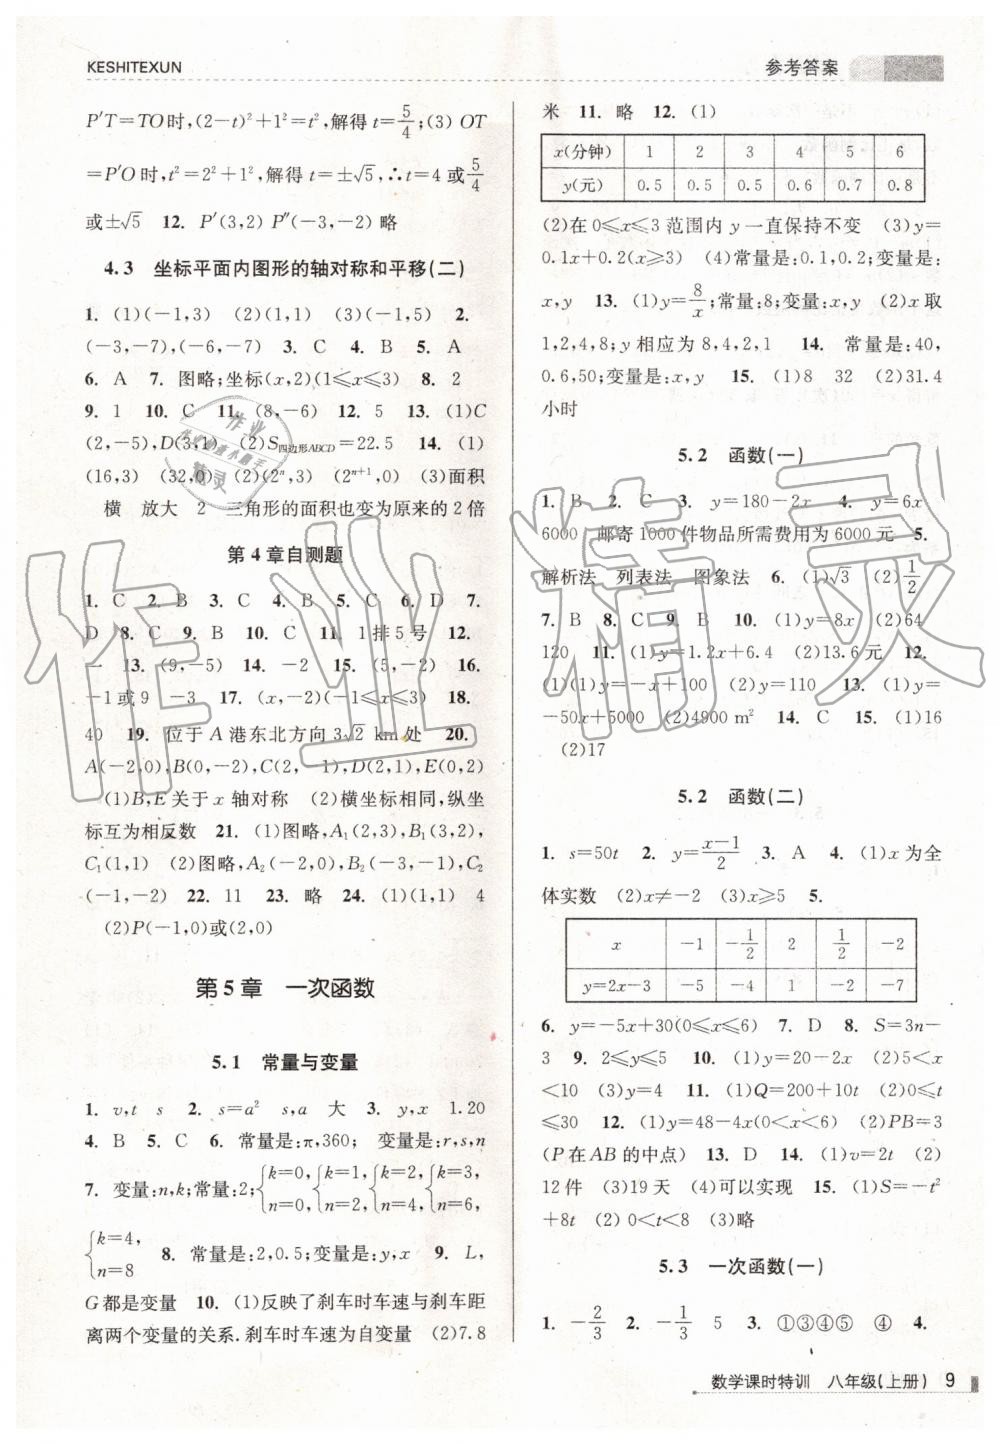 KESHITEXUN
参考答案
P′T=TO时,(2-t)²+1²=t²,解得t=5/4;(3) OT
=P′O时,t²=2²+1²,解得t=±√5,∴t=4或5/4
或±√5 12. P′(3,2) P″(-3,-2) 略
4.3 坐标平面内图形的轴对称和平移(二)
1. (1)(-1,3) (2)(1,1) (3)(-1,5) 2.
(-3,-7),(-6,-7) 3. C 4. B 5. A
6. A 7. 图略;坐标(x,2)(1⩽x⩽3) 8. 2
9. 1 10. C 11. (8,-6) 12. 5 13. (1)C
(2,-5),D(3,1) (2)S四边形ABCD=22.5 14. (1)
(16,3) (32,0) (2)(2ⁿ,3) (2ⁿ⁺¹,0) (3)面积
横 放大 2 三角形的面积也变为原来的2倍
第4章自测题
1. C 2. B 3. C 4. C 5. C 6. D 7.
D 8. C 9. B 10. C 11. 1排5号 12.
一 13. (9,-5) 14. -2 15. (5,-2) 16.
-1或9 -3 17. (x,-2)(-1⩽x⩽3) 18.
40 19. 位于A港东北方向3√2 km处 20.
A(-2,0),B(0,-2),C(2,-1),D(2,1),E(0,2)
(1)B,E关于x轴对称 (2)横坐标相同,纵坐
标互为相反数 21. (1)图略,A₁(2,3),B₁(3,2),
C₁(1,1) (2)图略,A₂(-2,0),B₂(-3,-1),C₂
(-1,-2) 22. 11 23. 略 24. (1)(1,1) 4
(2)P(-1,0)或(2,0)
第5章 一次函数
5.1 常量与变量
1. v,t s 2. s=a² s,a 大 3. y,x 1.20
4. B 5. C 6. 常量是:π,360; 变量是:r,s,n
7. 变量:n,k;常量:2;{k=0,n=0, {k=1,n=2, {k=2,n=4, {k=3,n=6,
{k=4,n=8 8. 常量是:2,0.5;变量是:y,x 9. L,
G都是变量 10. (1)反映了刹车时车速与刹车距
离两个变量的关系.刹车时车速为自变量 (2)7.8
米 11. 略 12. (1)
x(分钟) 1 2 3 4 5 6
y(元) 0.5 0.5 0.5 0.6 0.7 0.8
(2)在0⩽x⩽3范围内y一直保持不变 (3)y=
0.1x+0.2(x⩾3) (4)常量是:0.1,0.2;变量是:
x,y 13. (1)y=8/x;常量:8;变量:x,y (2)x取
1,2,4,8;y相应为8,4,2,1 14. 常量是:40,
0.6,50;变量是:x,y 15. (1)8 32 (2)31.4
小时
5.2 函数(一)
1. B 2. C 3. y=180-2x 4. y=6x
6000 邮寄1000件物品所需费用为6000元 5.
解析法 列表法 图象法 6. (1)√3 (2)1/2
7. B 8. C 9. B 10. (1)y=8x (2)64
120 11. (1)y=1.2x+6.4 (2)13.6元 12.
(1)(1)y=-x+100 (2)y=110 13. (1)y=
-50x+5000 (2)4900 m² 14. C 15. (1)16
(2)17
5.2 函数(二)
1. s=50t 2. y=(x-1)/2 3. A 4. (1)x为全
体实数 (2)x≠-2 (3)x⩾5 5.
x -1 -1/2 2 1/2 -2
y=2x-3 -5 -4 1 -2 -7
6. y=-5x+30(0⩽x⩽6) 7. D 8. S=3n-
3 9. 2⩽y⩽5 10. (1)y=20-2x (2)5<x
<10 (3)y=4 11. (1)Q=200+10t (2)0⩽t
⩽30 12. (1)y=48-4x(0<x<6) (2)PB=3
(P在AB的中点) 13. D 14. (1)v=2t (2)
12件 (3)19天 (4)可以实现 15. (1)S=-t²
+8t (2) 0<t<8 (3)略
5.3 一次函数(一)
1. -2/3 2. -1/3 5 3. ①③④⑤ ④ 4.
数学课时特训 八年级(上册) 9
作业精灵